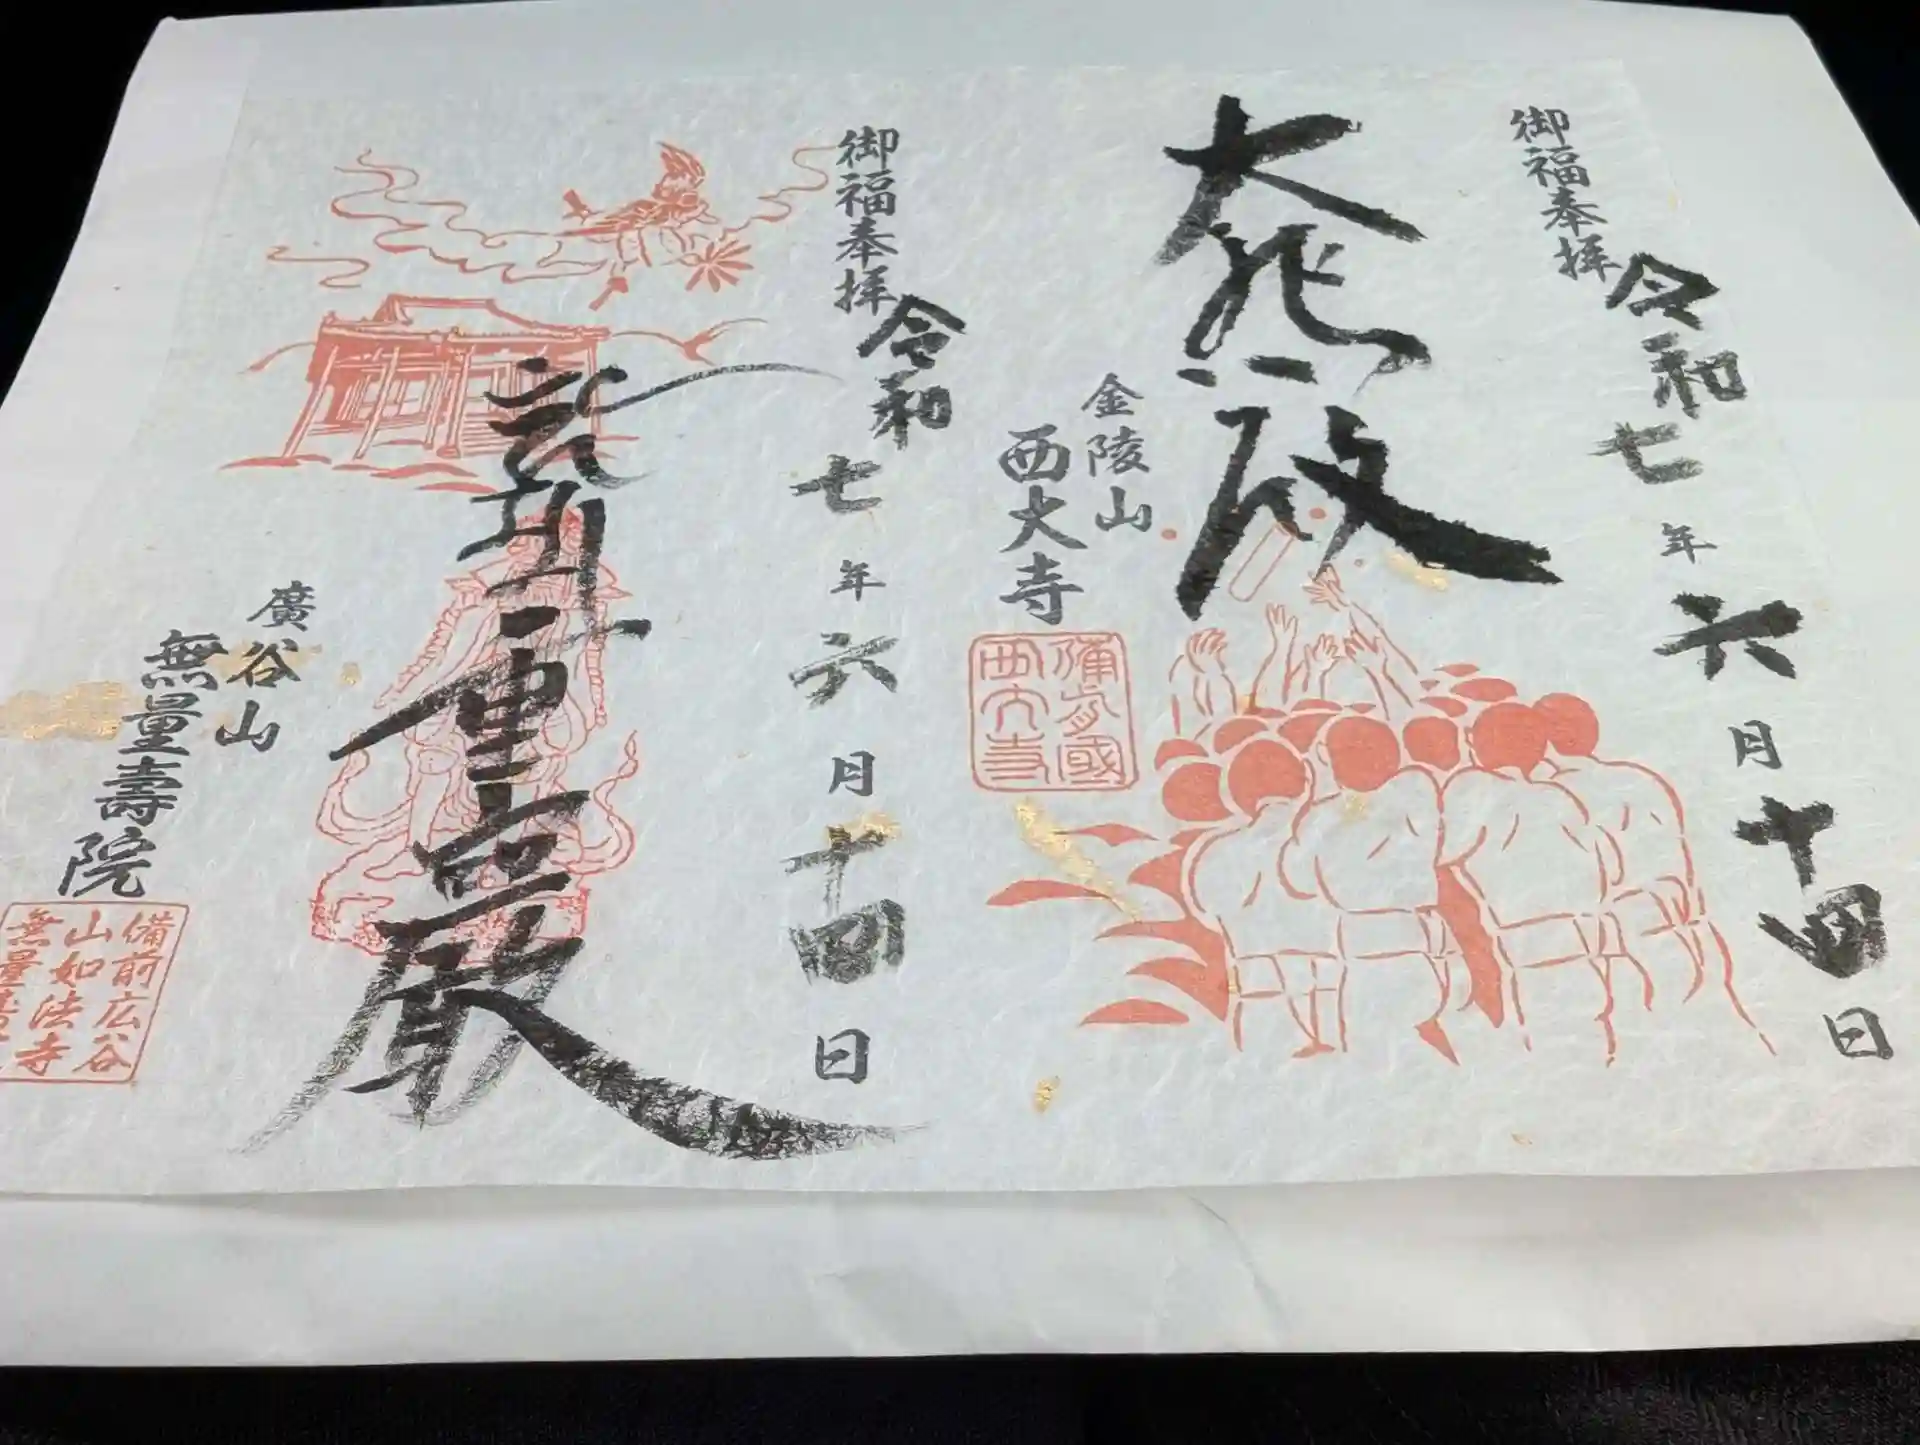 御福奉拝
令和七年六月十四日
大悲殿
金陵山
西大寺
備前國
西大寺
御福奉拝
令和七年六月十四日
廣谷山
無量壽院
備前広谷
山如法寺